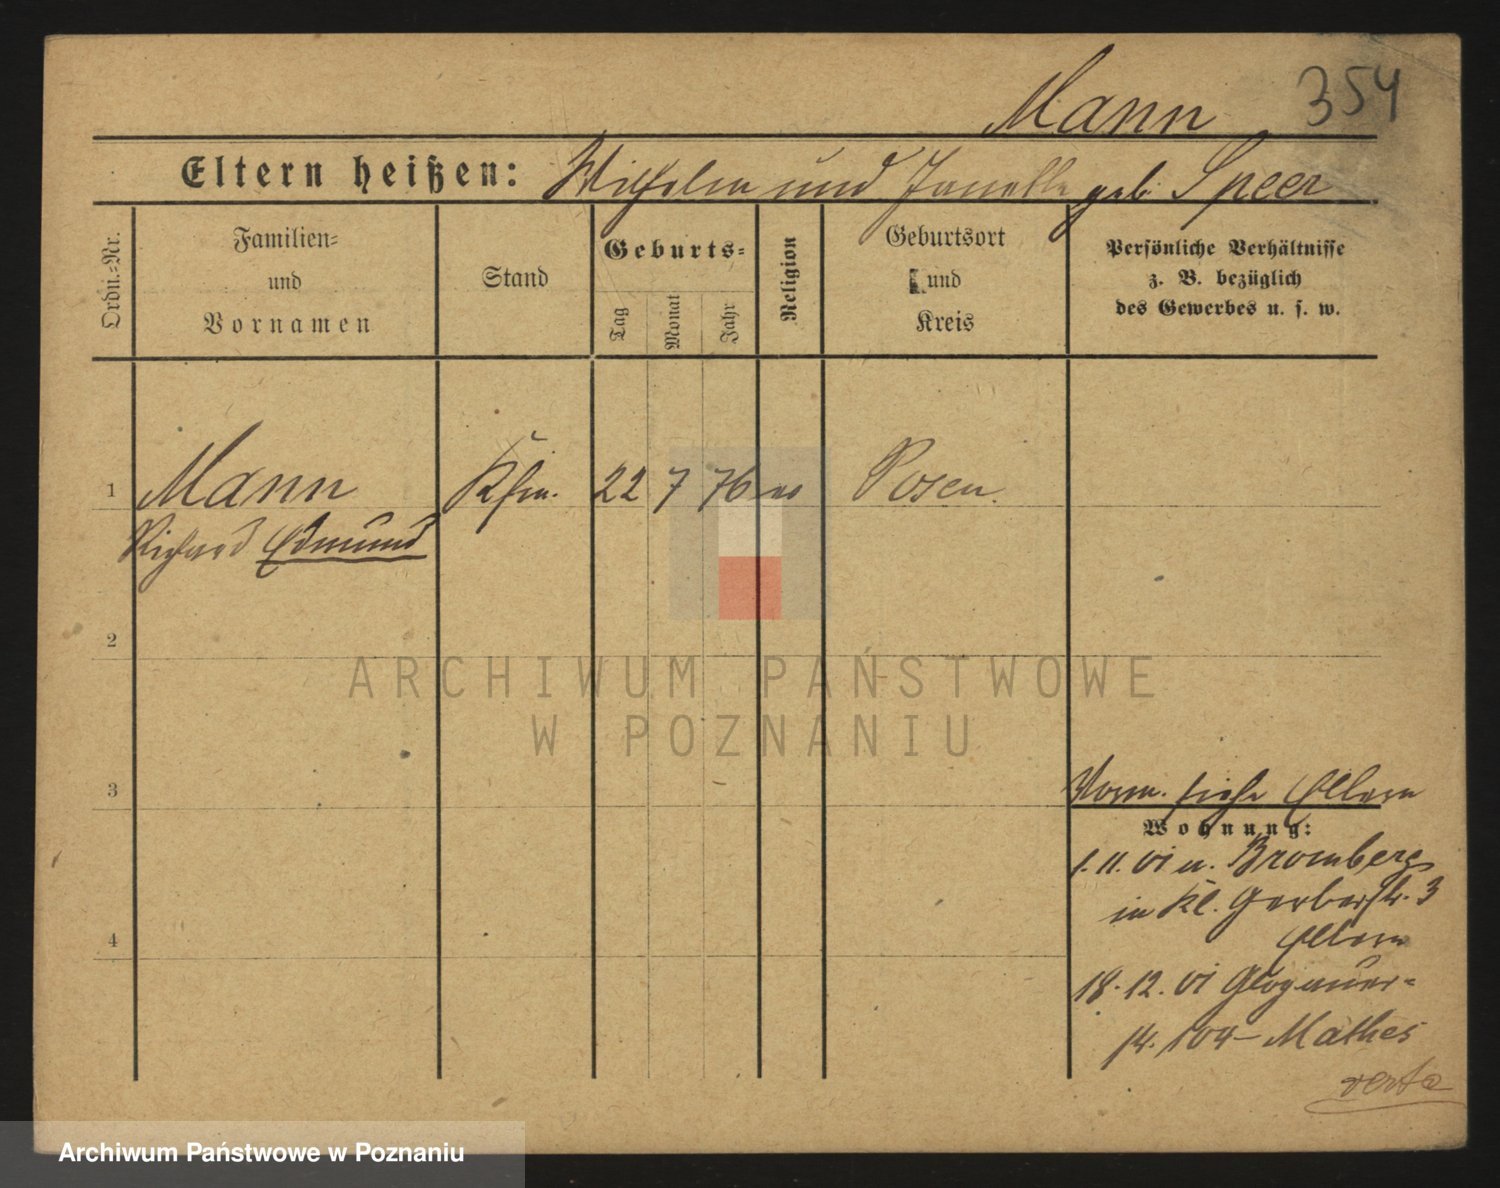 Mann 354
Eltern heißen: Wilhelm und Janette geb. Speer
Ordn.-Nr.
Familien-
und
Vornamen
Stand
Geburts-
Tag
Monat
Jahr
Religion
Geburtsort
und
Kreis
Persönliche Verhältnisse
z. B. bezüglich
des Gewerbes u. s. w.
1 Mann Kfm. 22 7 76 Posen.
Richard Edmund
2
ARCHIWUM PAŃSTWOWE
W POZNANIU
3
Vorm. siehe Eltern
Wohnung:
1.11.01 v. Bromberg
in Kl. Gerberstr. 3
Eltern
4
18.12.01 Glogauer-
str. 104 – Mathes
verte
Archiwum Państwowe w Poznaniu